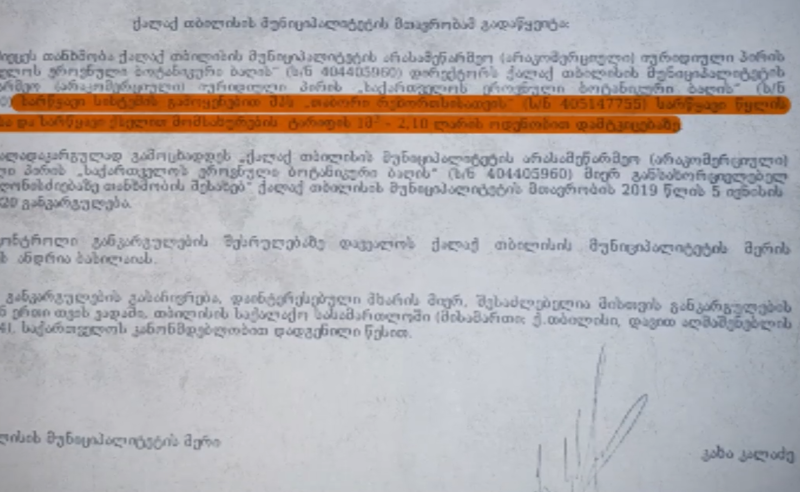 ქალაქ თბილისის მუნიციპალიტეტის მთავრობამ გადაწყვიტა:
თანხმობა ქალაქ თბილისის მუნიციპალიტეტის არასამეწარმეო (არაკომერციული) იურიდიული პირის
ეროვნული ბოტანიკური ბაღის" (ს/ნ 404405960) დირექტორს ქალაქ თბილისის მუნიციპალიტეტის
(არაკომერციული) იურიდიული პირის „საქართველოს ეროვნული ბოტანიკური ბაღის" (ს/ნ
სარწყავი სისტემის გამოყენებით შპს „თაბორი რეზორთსისათვის" (ს/ნ 405147755) სარწყავი წყლის
და სარწყავი ქსელით მომსახურების ტარიფის 1მ³ - 2,10 ლარის ოდენობით დამტკიცებაზე.
გამოცხადდეს „ქალაქ თბილისის მუნიციპალიტეტის არასამეწარმეო (არაკომერციული)
პირის „საქართველოს ეროვნული ბოტანიკური ბაღის" (ს/ნ 404405960) მიერ განსახორციელებელ
თანხმობის შესახებ" ქალაქ თბილისის მუნიციპალიტეტის მთავრობის 2019 წლის 5 ივნისის
განკარგულება.
განკარგულების შესრულებაზე დაევალოს ქალაქ თბილისის მუნიციპალიტეტის მერის
ანდრია ბასილაიას.
განკარგულების გასაჩივრება, დაინტერესებული მხარის მიერ, შესაძლებელია მისთვის განკარგულების
ერთი თვის ვადაში, თბილისის საქალაქო სასამართლოში (მისამართი: ქ.თბილისი, დავით აღმაშენებლის
საქართველოს კანონმდებლობით დადგენილი წესით.
მუნიციპალიტეტის მერი
კახა კალაძე